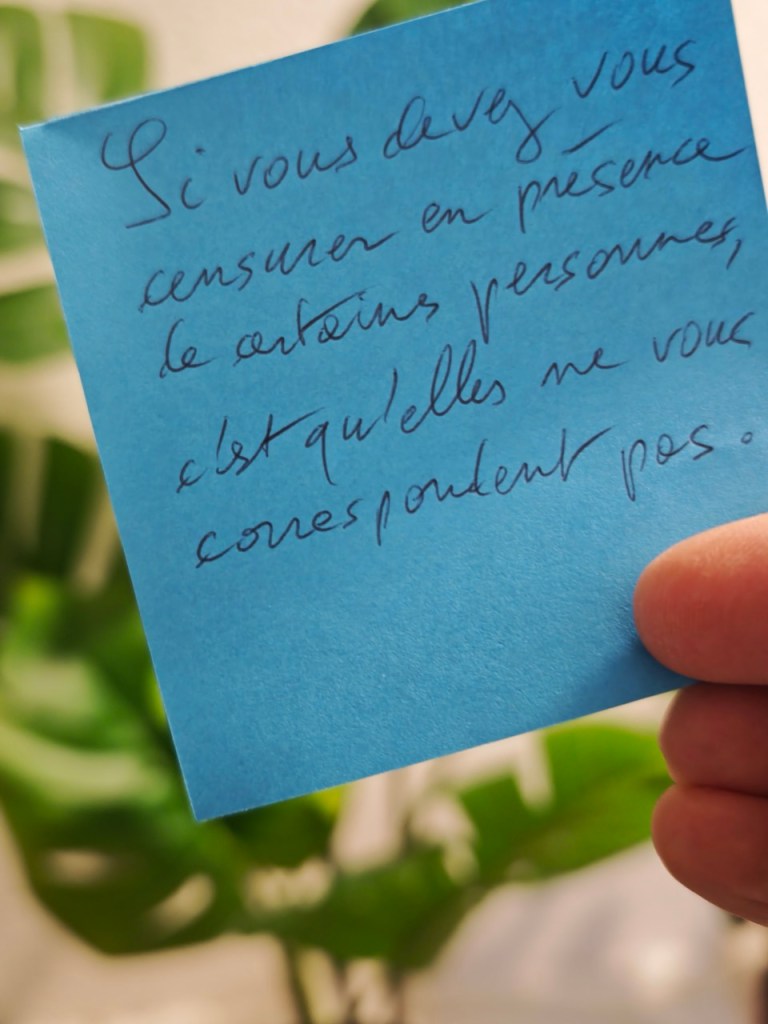 Si vous devez vous
censurer en présence
de certains personnes,
c'est qu'elles ne vous
correspondent pas.